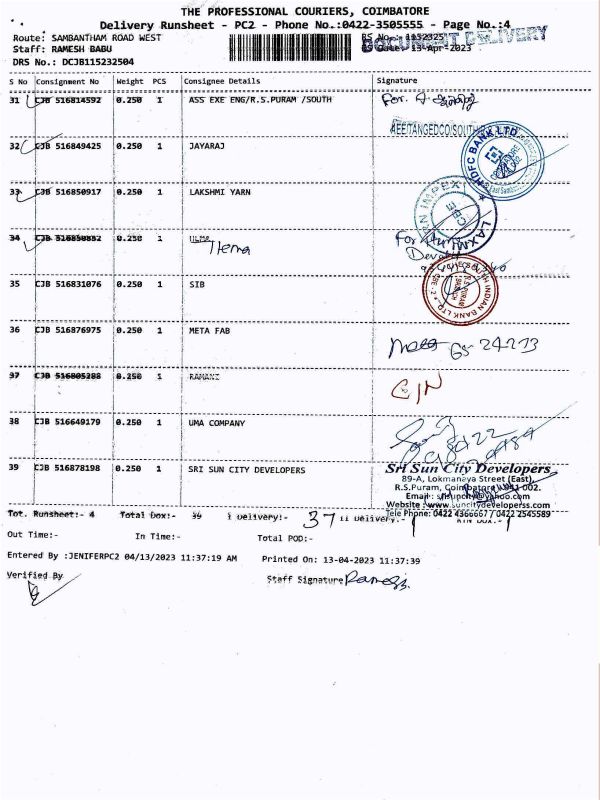 THE PROFESSIONAL COURIERS, COIMBATORE
Delivery Runsheet - PC2 - Phone No.:0422-3505555 - Page No.:4
Route: SAMBANTHAM ROAD WEST
RS No.: 1152325
DOCUMENT DELIVERY
Staff: RAMESH BABU
Date: 13-Apr-2023
DRS No.: DCJB115232504
S No Consignment No Weight PCS Consignee Details Signature
31 CJB 516814592 0.250 1 ASS EXE ENG/R.S.PURAM /SOUTH For.
AEE/TANGEDCO/SOUTH
32 CJB 516849425 0.250 1 JAYARAJ
HDFC BANK LTD
33 CJB 516850917 0.250 1 LAKSHMI YARN
LAXMI YARN IMPEX
CBE
34 CJB 0.250 1
Hema
For
35 CJB 516831076 0.250 1 SIB
SOUTH INDIAN BANK LTD.
R.S. PURAM
BRANCH
CBE - 2
36 CJB 516876975 0.250 1 META FAB
37 CJB 516805288 0.250 1 RAMANI
C/N
38 CJB 516649179 0.250 1 UMA COMPANY
39 CJB 516878198 0.250 1 SRI SUN CITY DEVELOPERS
Sri Sun City Developers
89-A, Lokmanaya Street (East),
R.S.Puram, Coimbatore - 641 002.
Email: srisuncity@yahoo.com
Website: www.suncitydeveloperss.com
Tele Phone: 0422 4366667 / 0422 2545589
Tot. Runsheet:- 4 Total Dox:- 39 Delivery:- 37 Delivery:- 1 RTN Dox:- 1
Out Time:- In Time:- Total POD:-
Entered By :JENIFERPC2 04/13/2023 11:37:19 AM Printed On: 13-04-2023 11:37:39
Verified By Staff Signature Ramesh